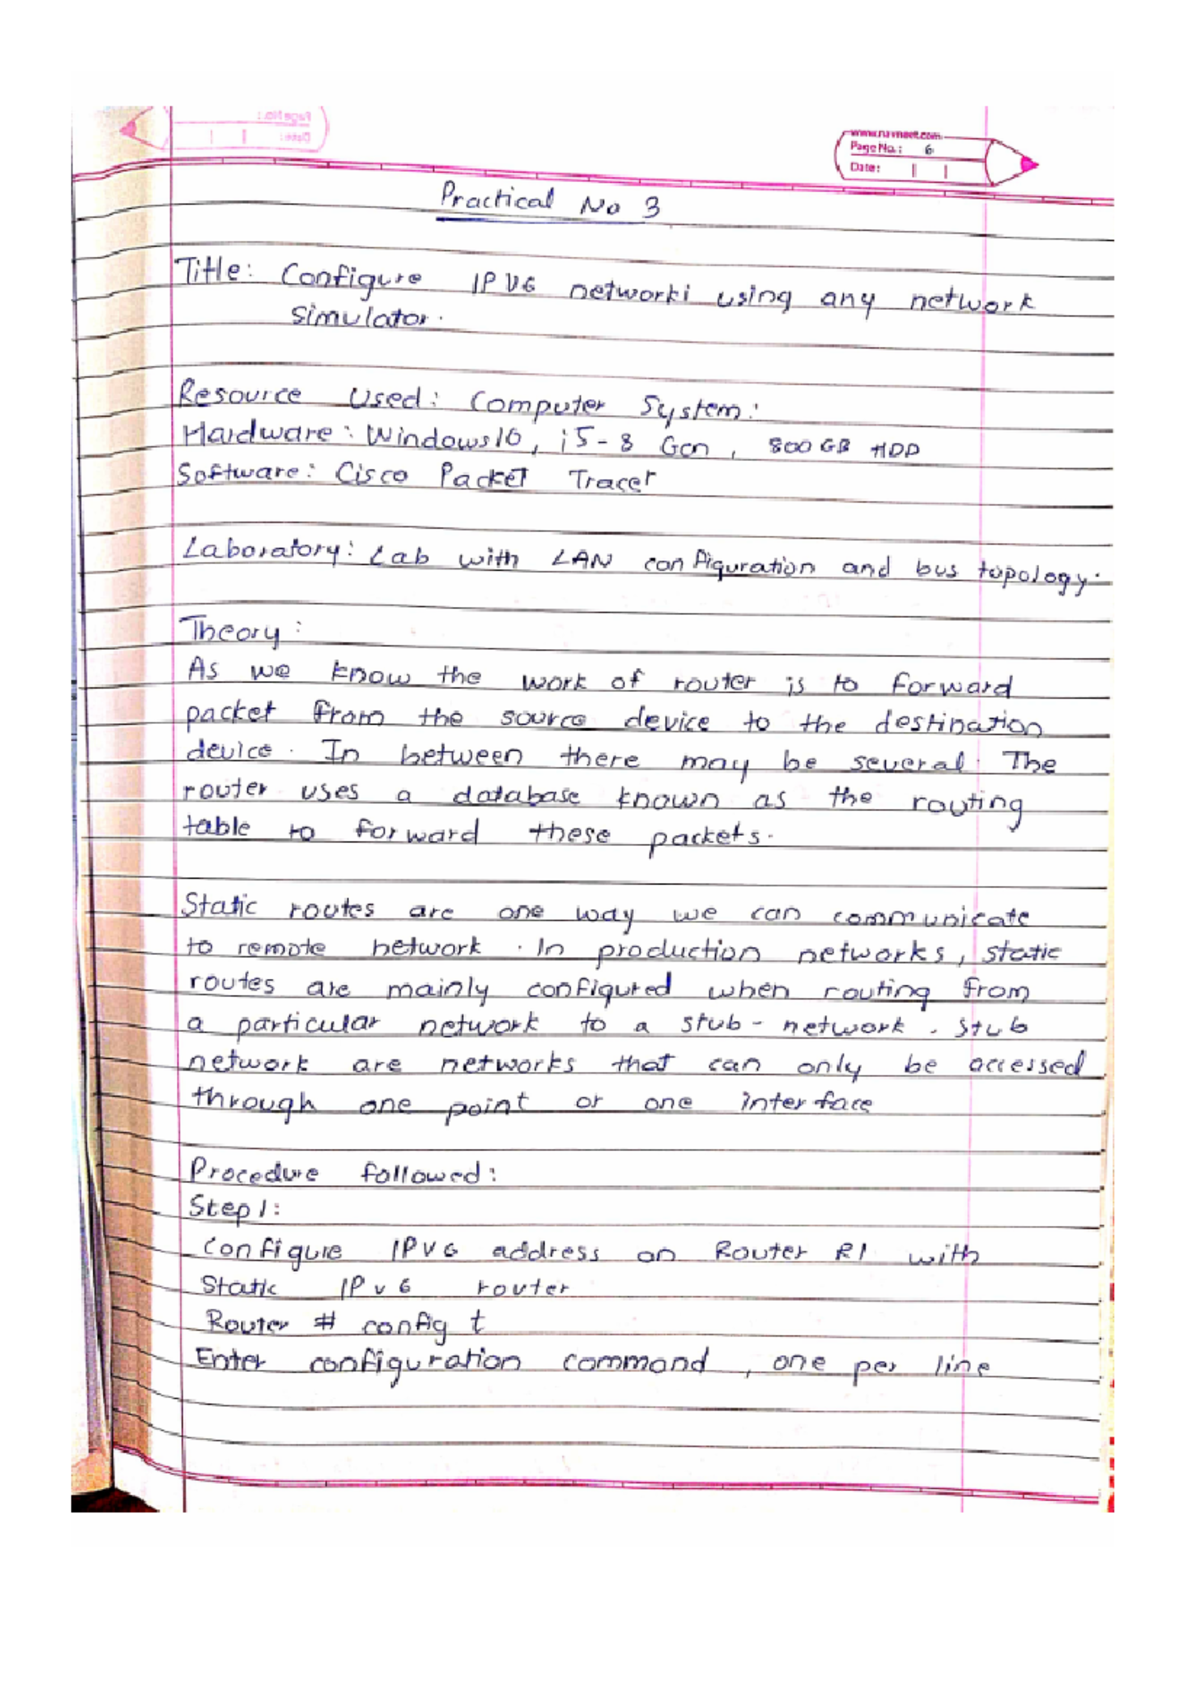 www.navneet.com
Page No.: 6
Date:
Practical No 3
Title: Configure IPV6 networki using any network
Simulator.
Resource Used: Computer System:
Hardware: Windows10, i5-8 Gen, 800 GB HDD
Software: Cisco Packet Tracer
Laboratory: Lab with LAN configuration and bus topology.
Theory:
As we know the work of router is to forward
packet from the source device to the destination
device. In between there may be several. The
router uses a database known as the routing
table to forward these packets.
Static routes are one way we can communicate
to remote network. In production networks, static
routes are mainly configured when routing from
a particular network to a stub-network. Stub
network are networks that can only be accessed
through one point or one interface
Procedure followed:
Step 1:
Configure IPV6 address on Router R1 with
Static IPv6 router
Router # config t
Enter configuration command, one per line